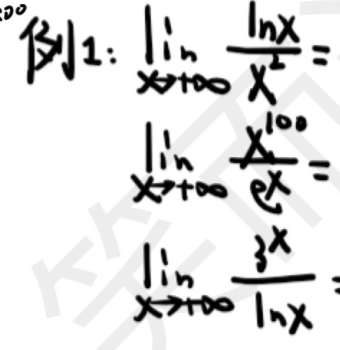 例1: lim x→+∞ lnx/x² =
lim x→+∞ x¹⁰⁰/eˣ =
lim x→+∞ 3ˣ/lnx =